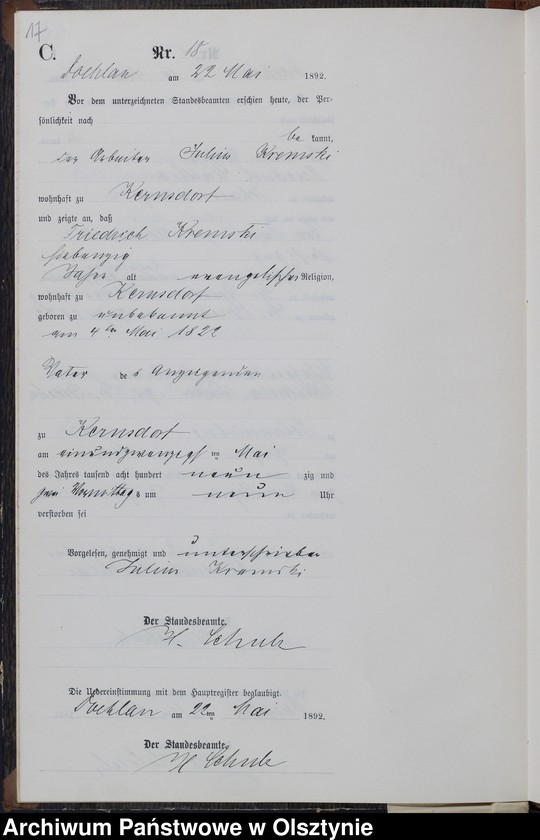 17
C. Nr. 18
Doehlau am 22 Mai 1892.
Vor dem unterzeichneten Standesbeamten erschien heute, der Per-
sönlichkeit nach
be kannt,
der Arbeiter Julius Kremski
wohnhaft zu Kernsdorf
und zeigte an, daß
Friedrich Kremski
siebenzig
Jahr alt evangelischer Religion,
wohnhaft zu Kernsdorf
geboren zu unbekannt
am 4ten Mai 1822
Vater des Anzeigenden
zu Kernsdorf
am einundzwanzigsten Mai
des Jahres tausend acht hundert neun zig und
zwei Vormittags um neun Uhr
verstorben sei
Vorgelesen, genehmigt und unterschrieben
Julius Kremski
Der Standesbeamte.
H. Schulz
Die Uebereinstimmung mit dem Hauptregister beglaubigt.
Doehlau am 22ten Mai 1892.
Der Standesbeamte.
H Schulz
Archiwum Państwowe w Olsztynie